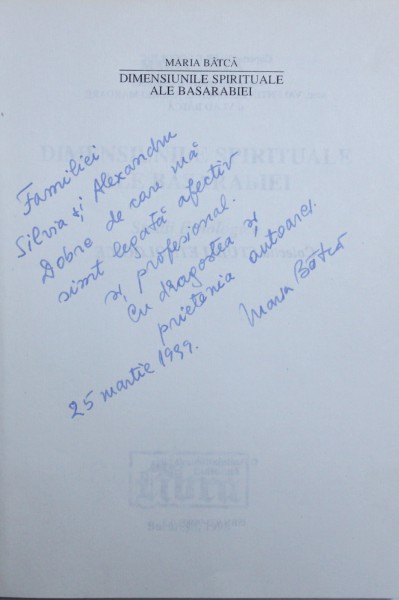 MARIA BÂTCĂ
DIMENSIUNILE SPIRITUALE
ALE BASARABIEI
Familiei
Silvia și Alexandru
Dobre de care mă
simt legată afectiv
și profesional.
Cu dragostea și
prietenia autoarei.
Maria Bâtcă
25 martie 1999.